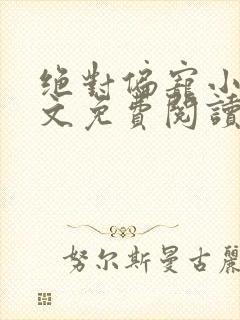 絕對偏寵小
文免費閱讀
努尔斯曼古麗